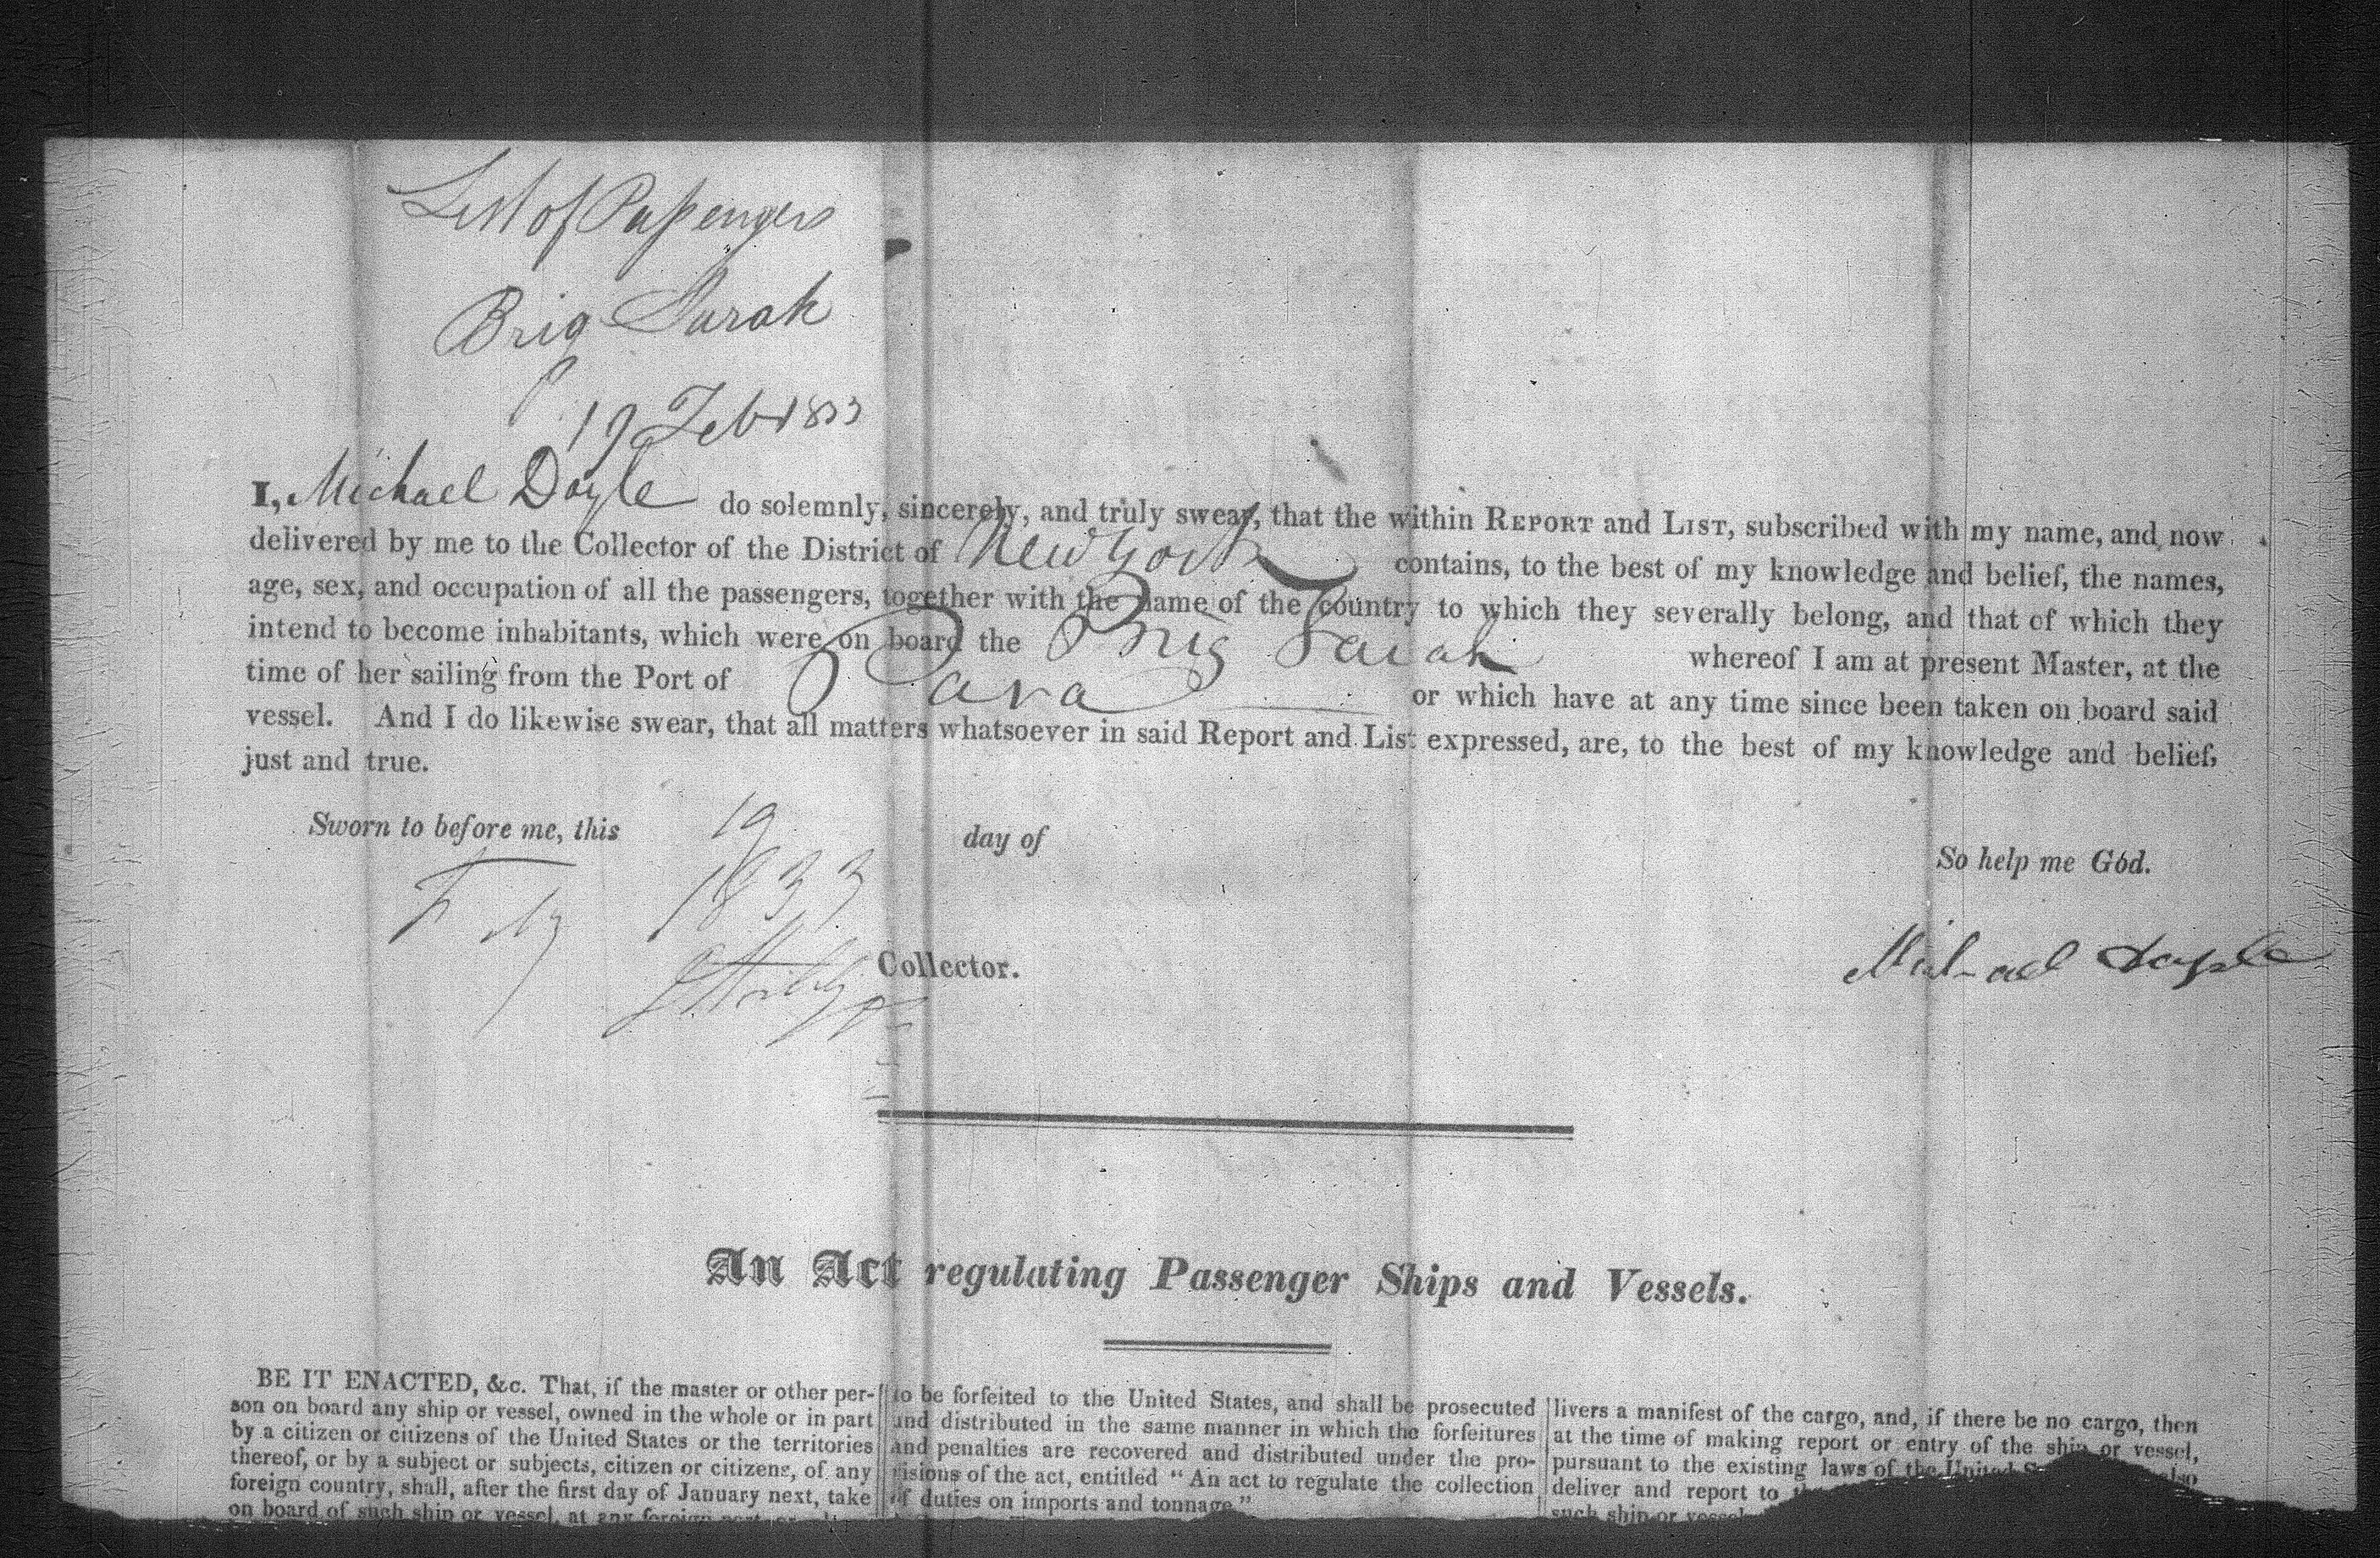 List of Passengers
Brig Sarah
19 Feb 1833
I, Michael Doyle do solemnly, sincerely, and truly swear, that the within REPORT and LIST, subscribed with my name, and now
delivered by me to the Collector of the District of New York contains, to the best of my knowledge and belief, the names,
age, sex, and occupation of all the passengers, together with the name of the country to which they severally belong, and that of which they
intend to become inhabitants, which were on board the Brig Sarah whereof I am at present Master, at the
time of her sailing from the Port of Para or which have at any time since been taken on board said
vessel. And I do likewise swear, that all matters whatsoever in said Report and List expressed, are, to the best of my knowledge and belief,
just and true.
Sworn to before me, this 19 day of
So help me God.
1833
Collector.
Michael Doyle
An Act regulating Passenger Ships and Vessels.
BE IT ENACTED, &c. That, if the master or other per-
son on board any ship or vessel, owned in the whole or in part
by a citizen or citizens of the United States or the territories
thereof, or by a subject or subjects, citizen or citizens, of any
foreign country, shall, after the first day of January next, take
on board of such ship or vessel, at any foreign
to be forfeited to the United States, and shall be prosecuted
and distributed in the same manner in which the forfeitures
and penalties are recovered and distributed under the pro-
visions of the act, entitled "An act to regulate the collection
of duties on imports and tonnage."
livers a manifest of the cargo, and, if there be no cargo, then
at the time of making report or entry of the ship or vessel,
pursuant to the existing laws of the United
deliver and report to
such ship or